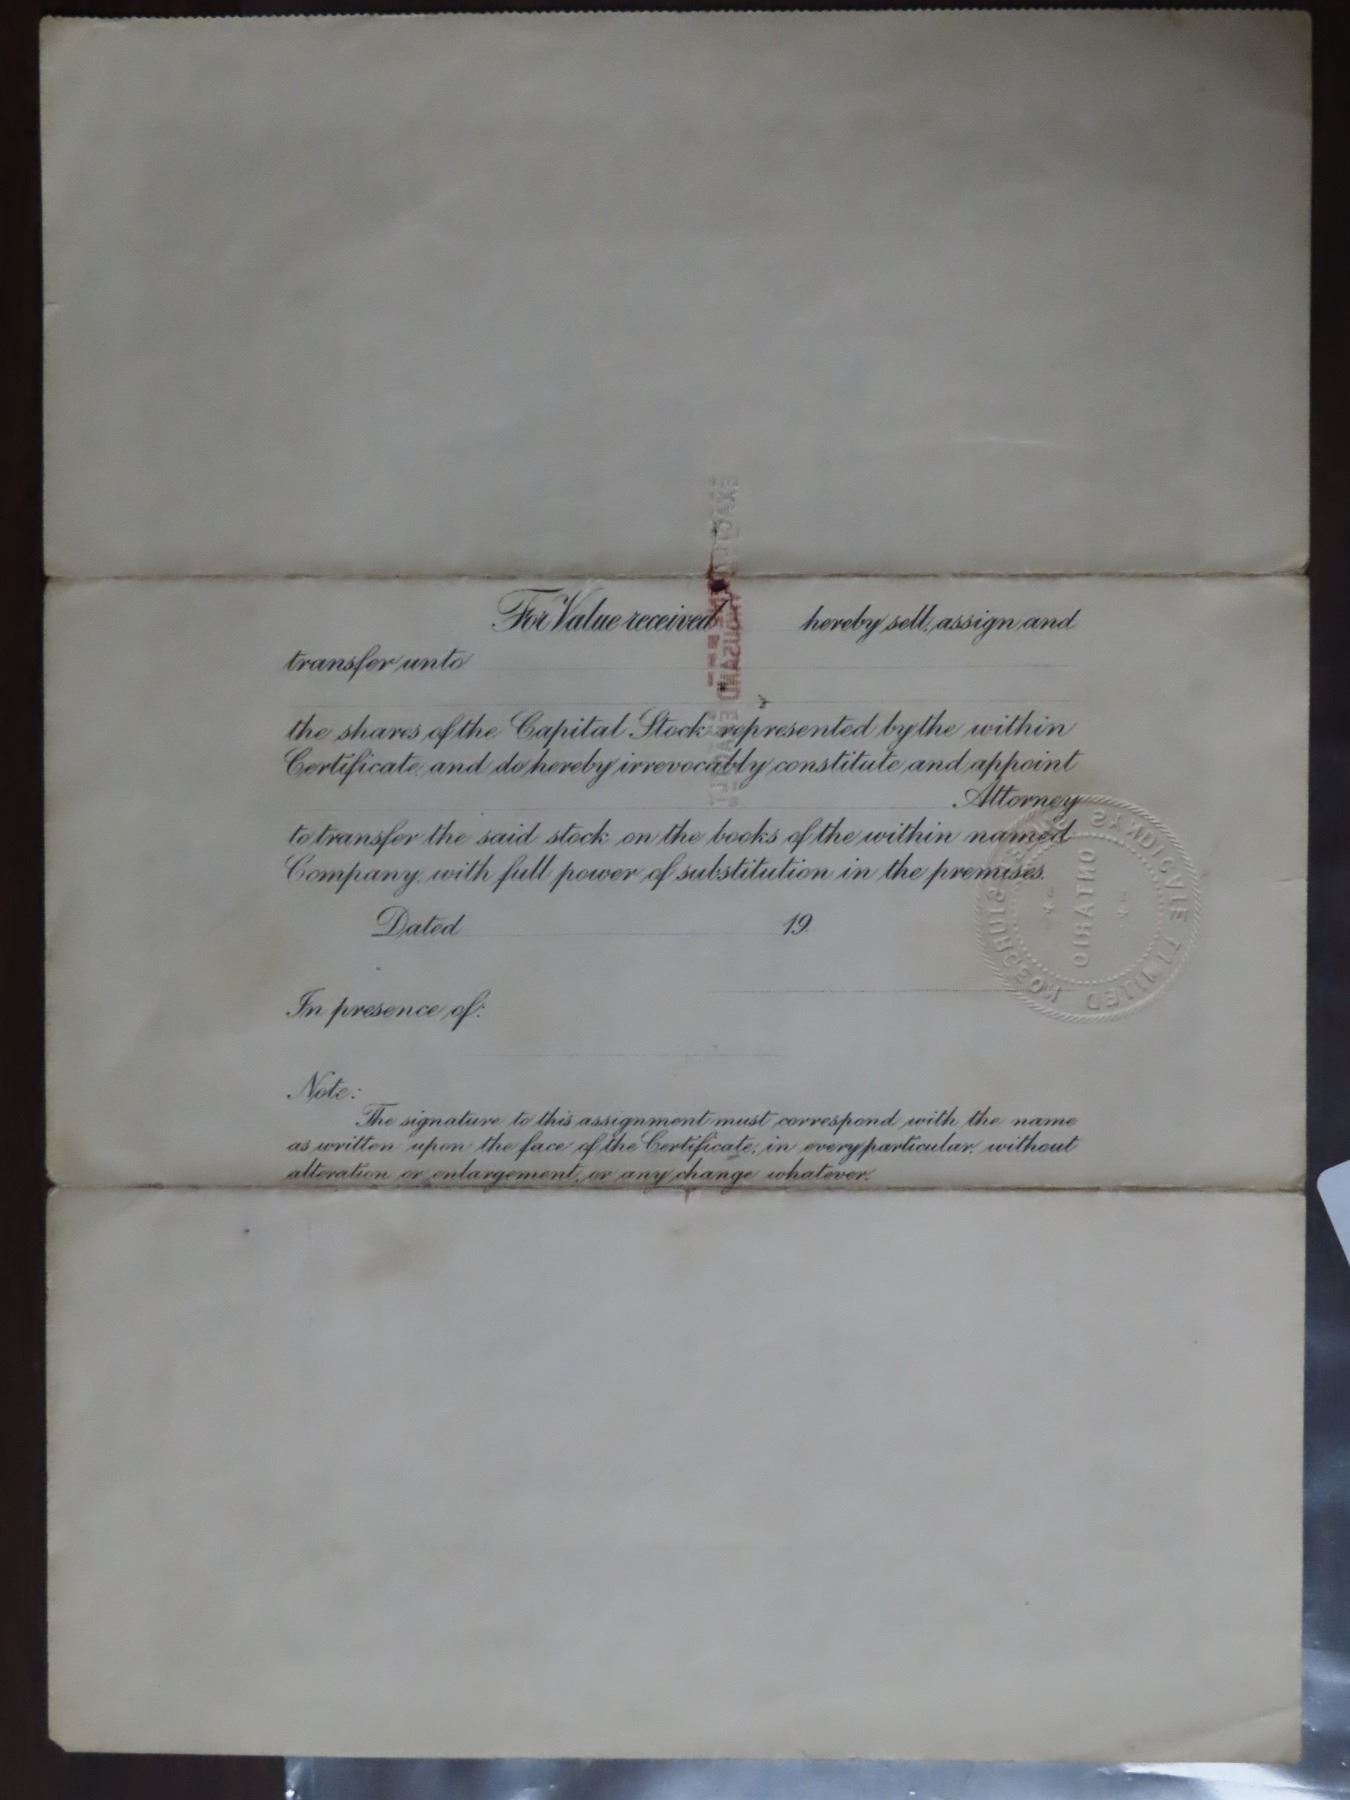 For Value received hereby sell, assign and
transfer unto
the shares of the Capital Stock represented by the within
Certificate, and do hereby irrevocably constitute and appoint
Attorney
to transfer the said stock on the books of the within named
Company, with full power of substitution in the premises.
Dated 19
In presence of:
Note:
The signature to this assignment must correspond with the name
as written upon the face of the Certificate, in every particular, without
alteration or enlargement, or any change whatever.
ONTARIO